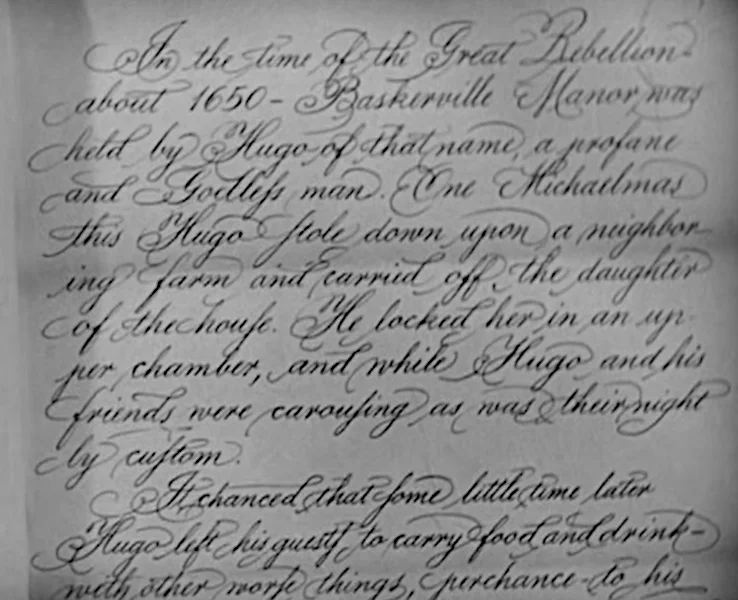 In the time of the Great Rebellion-
about 1650- Baskerville Manor was
held by Hugo of that name, a profane
and Godleſs man. One Michaelmas
this Hugo ſtole down upon a neighbor-
ing farm and carried off the daughter
of the houſe. He locked her in an up-
per chamber, and while Hugo and his
friends were carouſing as was their night
ly cuſtom.
It chanced that ſome little time later
Hugo left his gueſts to carry food and drink-
with other worſe things, perchance-to his